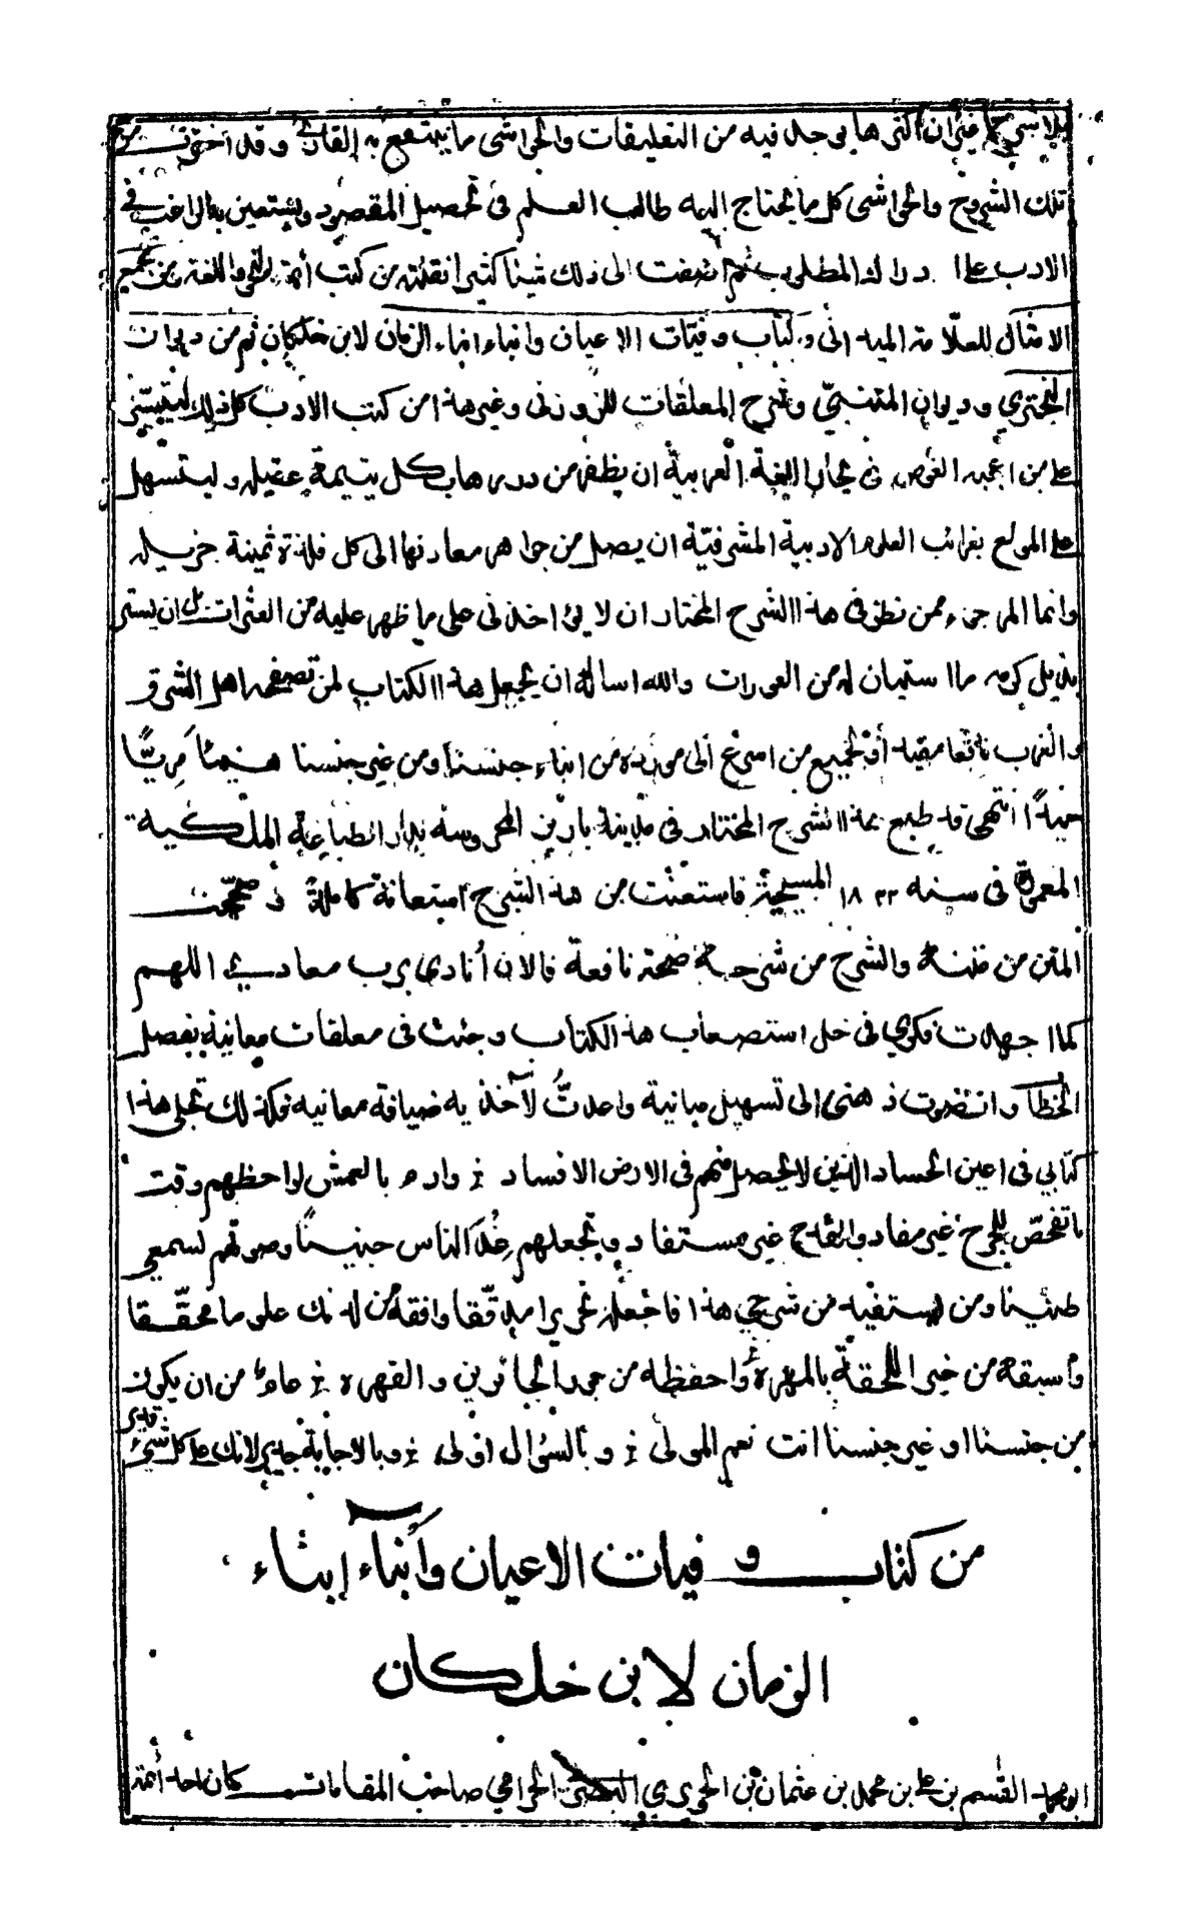 بلا شرح غير ان اكثرها يوجد فيه من التعليقات والحواشى ما ينتفع به القارئ وقد اخترت من
تلك الشروح والحواشى كل ما يحتاج اليه طالب العلم فى تحصيل المقصود ويستعين به الراغب فى
الادب على ادراك المطلوب ثم اضفت الى ذلك شيئا كثيرا نقلته من كتب أئمة النحو واللغة من مجمع
الامثال للعلامة الميدانى وكتاب وفيات الاعيان وانباء ابناء الزمان لابن خلكان ثم من ديوان
البحتري وديوان المتنبّي وشرح المعلقات للزوزنى وغيرها من كتب الادب كل ذلك ليتيسّر
على من اعجبه الغوص فى بحار اللغة العربية ان يظفر من دررها بكل يتيمة عقيلة وليتسهل
على المولع بغرائب العلوم الادبية المشرقيّة ان يصل من جواهر معادنها الى كل فلذة ثمينة جزيلة
وانما المرجوء ممن نظر فى هذا الشرح المختار ان لا يؤاخذنى على ما ظهر عليه من العثرات بل ان يستر
بذيل كرمه ما استبان له من العورات والله اسأله ان يجعل هذا الكتاب لمن تصفحه اهل الشرق
والغرب نافعا مقيدا و لجميع من اسرع الى مورده من ابناء جنسنا ومن غير جنسنا هنيئًا مريّا
انتهى قد طبع هذا الشرح المختار فى مدينة باريز المحروسة بدار الطباعة الملكية
المعمورة فى سنه ١٨٢٢ المسيحية فاستعنت من هذا الشرح استعانة كاملة صححت
المتن من متنه والشرح من شرحه صحة نافعة فالان أنادى برب معادي اللهم
كما اجهدت فكري فى حل استصعاب هذا الكتاب وجئت فى معلقات معانيه بفصل
الخطاب وانتضيت ذهنى الى تسهيل مبانية واعدتُّ لآخذيه ضيافة معانيه فكذلك تجلى هذا
كتابي فى اعين الحساد الذين لا يحصل منهم فى الارض الا فساد وادم بالعمش لواحظهم وقت
ما تفحص للجرح غير مفاد والقدح غير مستفاد وتجعلهم عند الناس وصوتهم لسمعي
طنينا ومن استفيد من شرحي هذا فاجعله تحريرا مدقّقا وافقه من لدنك علوما محقّقا
وأسبقه من خير اللحقة بالمهرة واحفظه من جور الجائرين والقهرة من ان يكون
من جنسنا او غير جنسنا انت نعم المولى وبالسؤال اولى وبالاجابة جدير لانك على كل شئ قدير
من كتاب وفيات الاعيان وأنبآء إبناء
الزمان لابن خلكان
ابو محمد القسم بن على بن محمد بن عثمان بن الحريري البصرى الحرامي صاحب المقامات كان احد أئمة